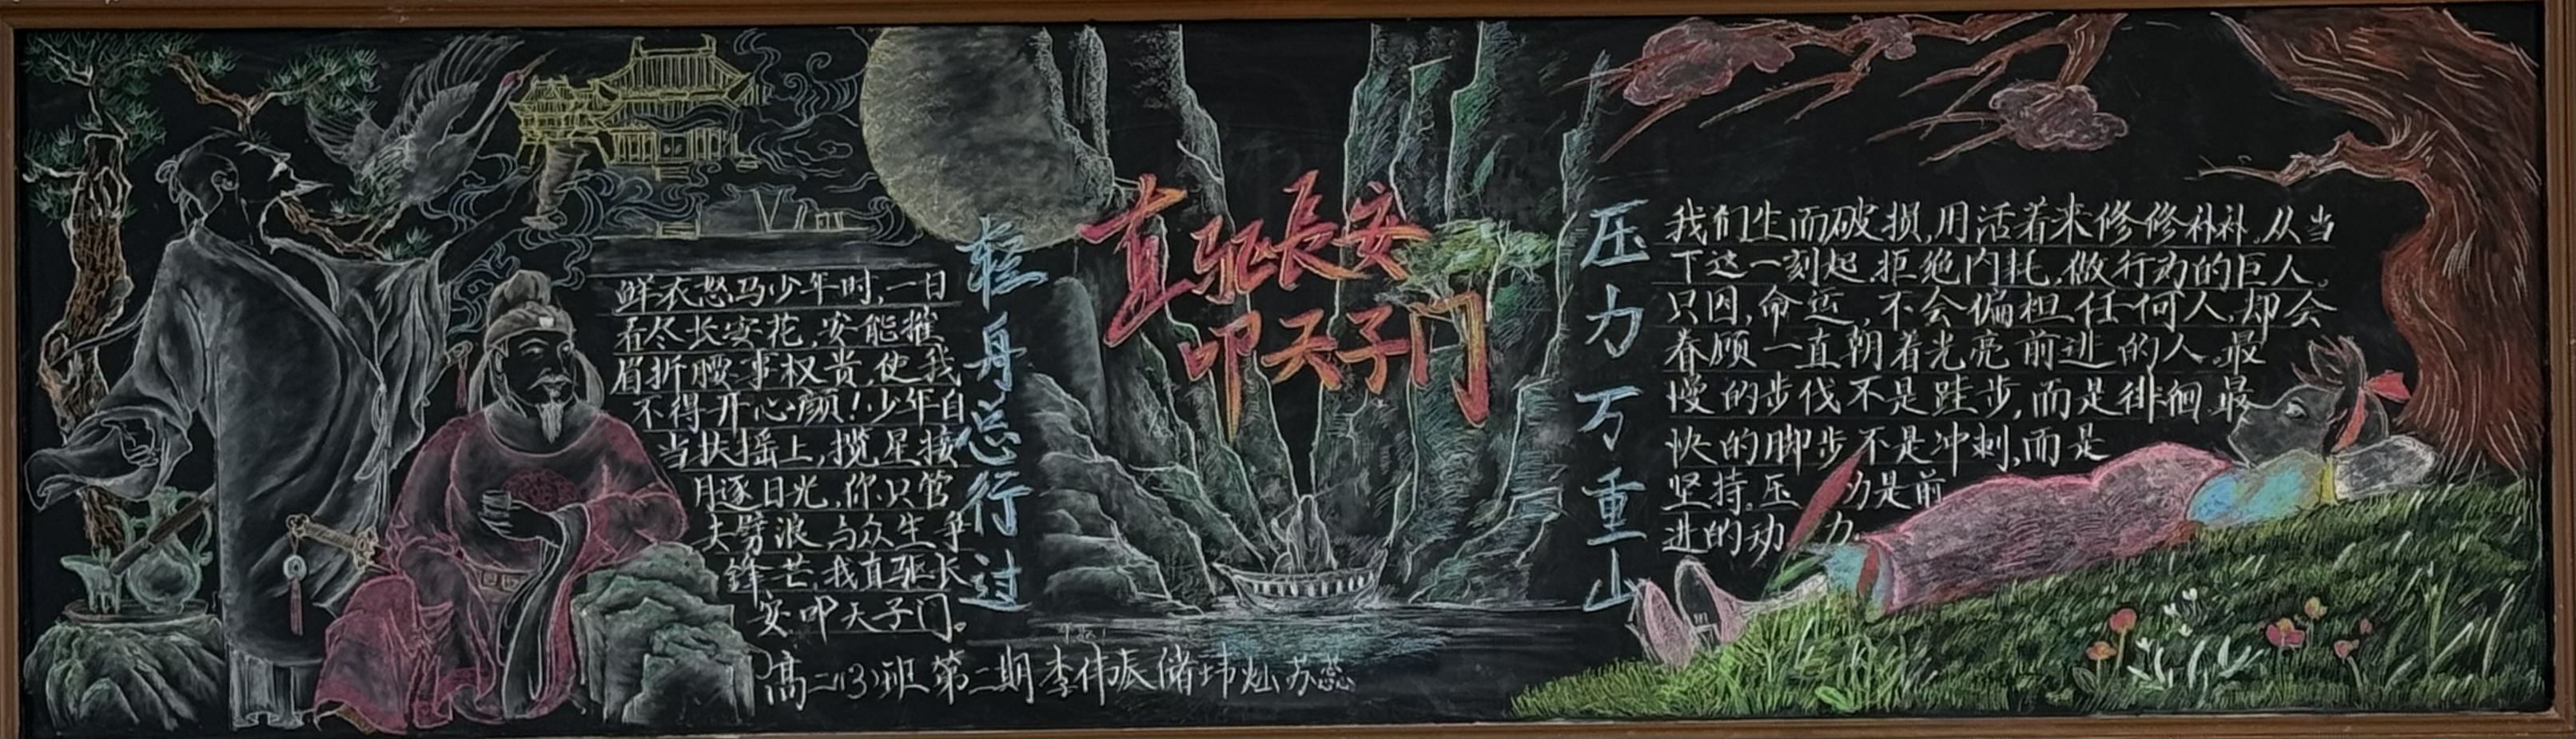 鲜衣怒马少年时,一日
看尽长安花,安能摧
眉折腰事权贵,使我
不得开心颜!少年自
当扶摇上,揽星接
月逐日光,你只管
大劈浪,与众生争
锋芒,我直驱长
安叩天子门。
轻舟总行过
直驱長安
叩天子门
压力万重山
我们生而破损,用活着来修修补补。从当
下这一刻起,拒绝内耗,做行动的巨人。
只因,命运,不会偏袒任何人,却会
眷顾一直朝着光亮前进的人。最
慢的步伐不是跬步,而是徘徊,最
快的脚步不是冲刺,而是
坚持。压力是前
进的动力。
高二(3)班第二期李伟振储坤灿苏蕊